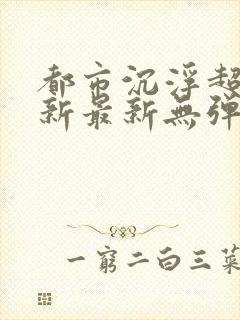 都市沉浮超
新最新無彈
一窮二白三菜